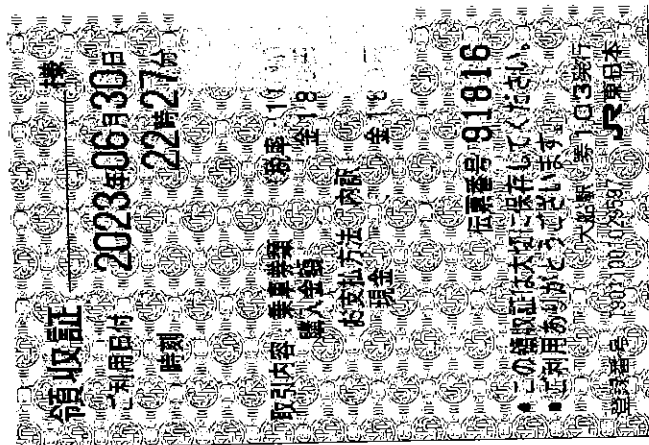 領収証 様
ご利用日付 2023年06月30日
時刻 22時27分
取引内容 乗車券類 税率 10
購入金額 金18
お支払方法 内訳
現金 金18
伝票番号 81816
● この領収証は大切に保存してください。
■ ご利用ありがとうございます。
大船駅 券103発行
登録番号 JR東日本